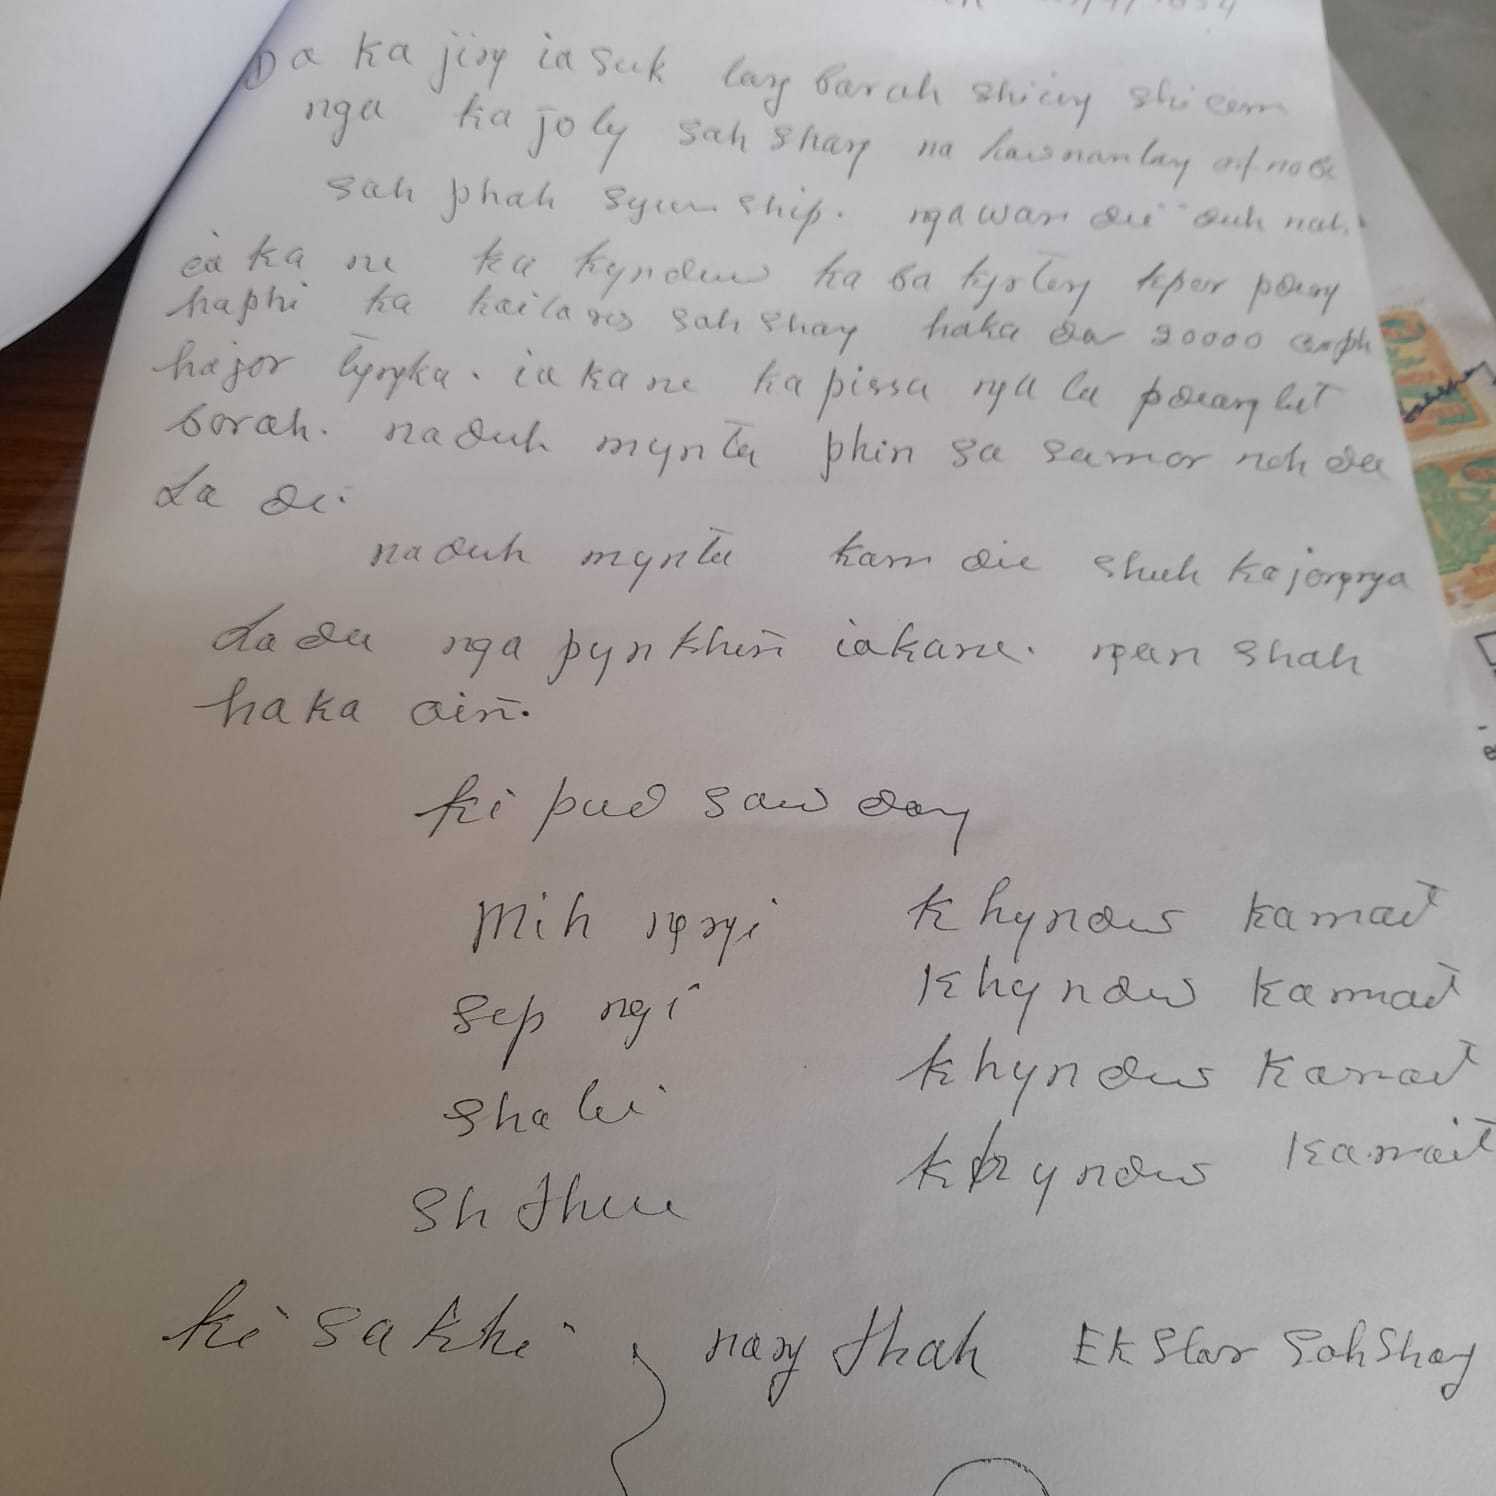 Da ka jing ia suk lang barah shieng shi eem
nga ka joly sah shang na
sah phah syun ship. nga wan die duh nah
ia ka ne ka kyndew ka ba kyrteng kper
haphi ka sah shang haka da 20000 arphh
hajor tyngka. ia kane ka pissa nga la pdiang lut
barah. naduh mynta phin sa samar noh da
La di.
naduh mynta kam die shuh ka jong nga
Lada nga pynkheiñ iakane. ngan shah
haka aiñ.
ki pud saw dong
Mih ngngi Khyndew kamait
Sep ngi Khyndew kamait
Shalei Khyndew kamait
Shthu Khyndew kamait
ki sakhi , nang thah Ek Star Sohshang